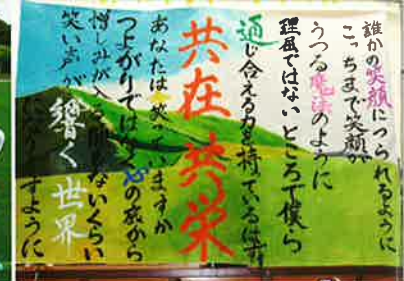 誰かの笑顔につられるように
こっちまで笑顔が
うつる魔法のように
理屈ではないところで僕ら
通じ合える力を持っているはず
共在共栄
あなたは今笑っていますか
つよがりではなく心の底から
憎しみが入る隙もないくらい
笑い声が
響く世界
ように